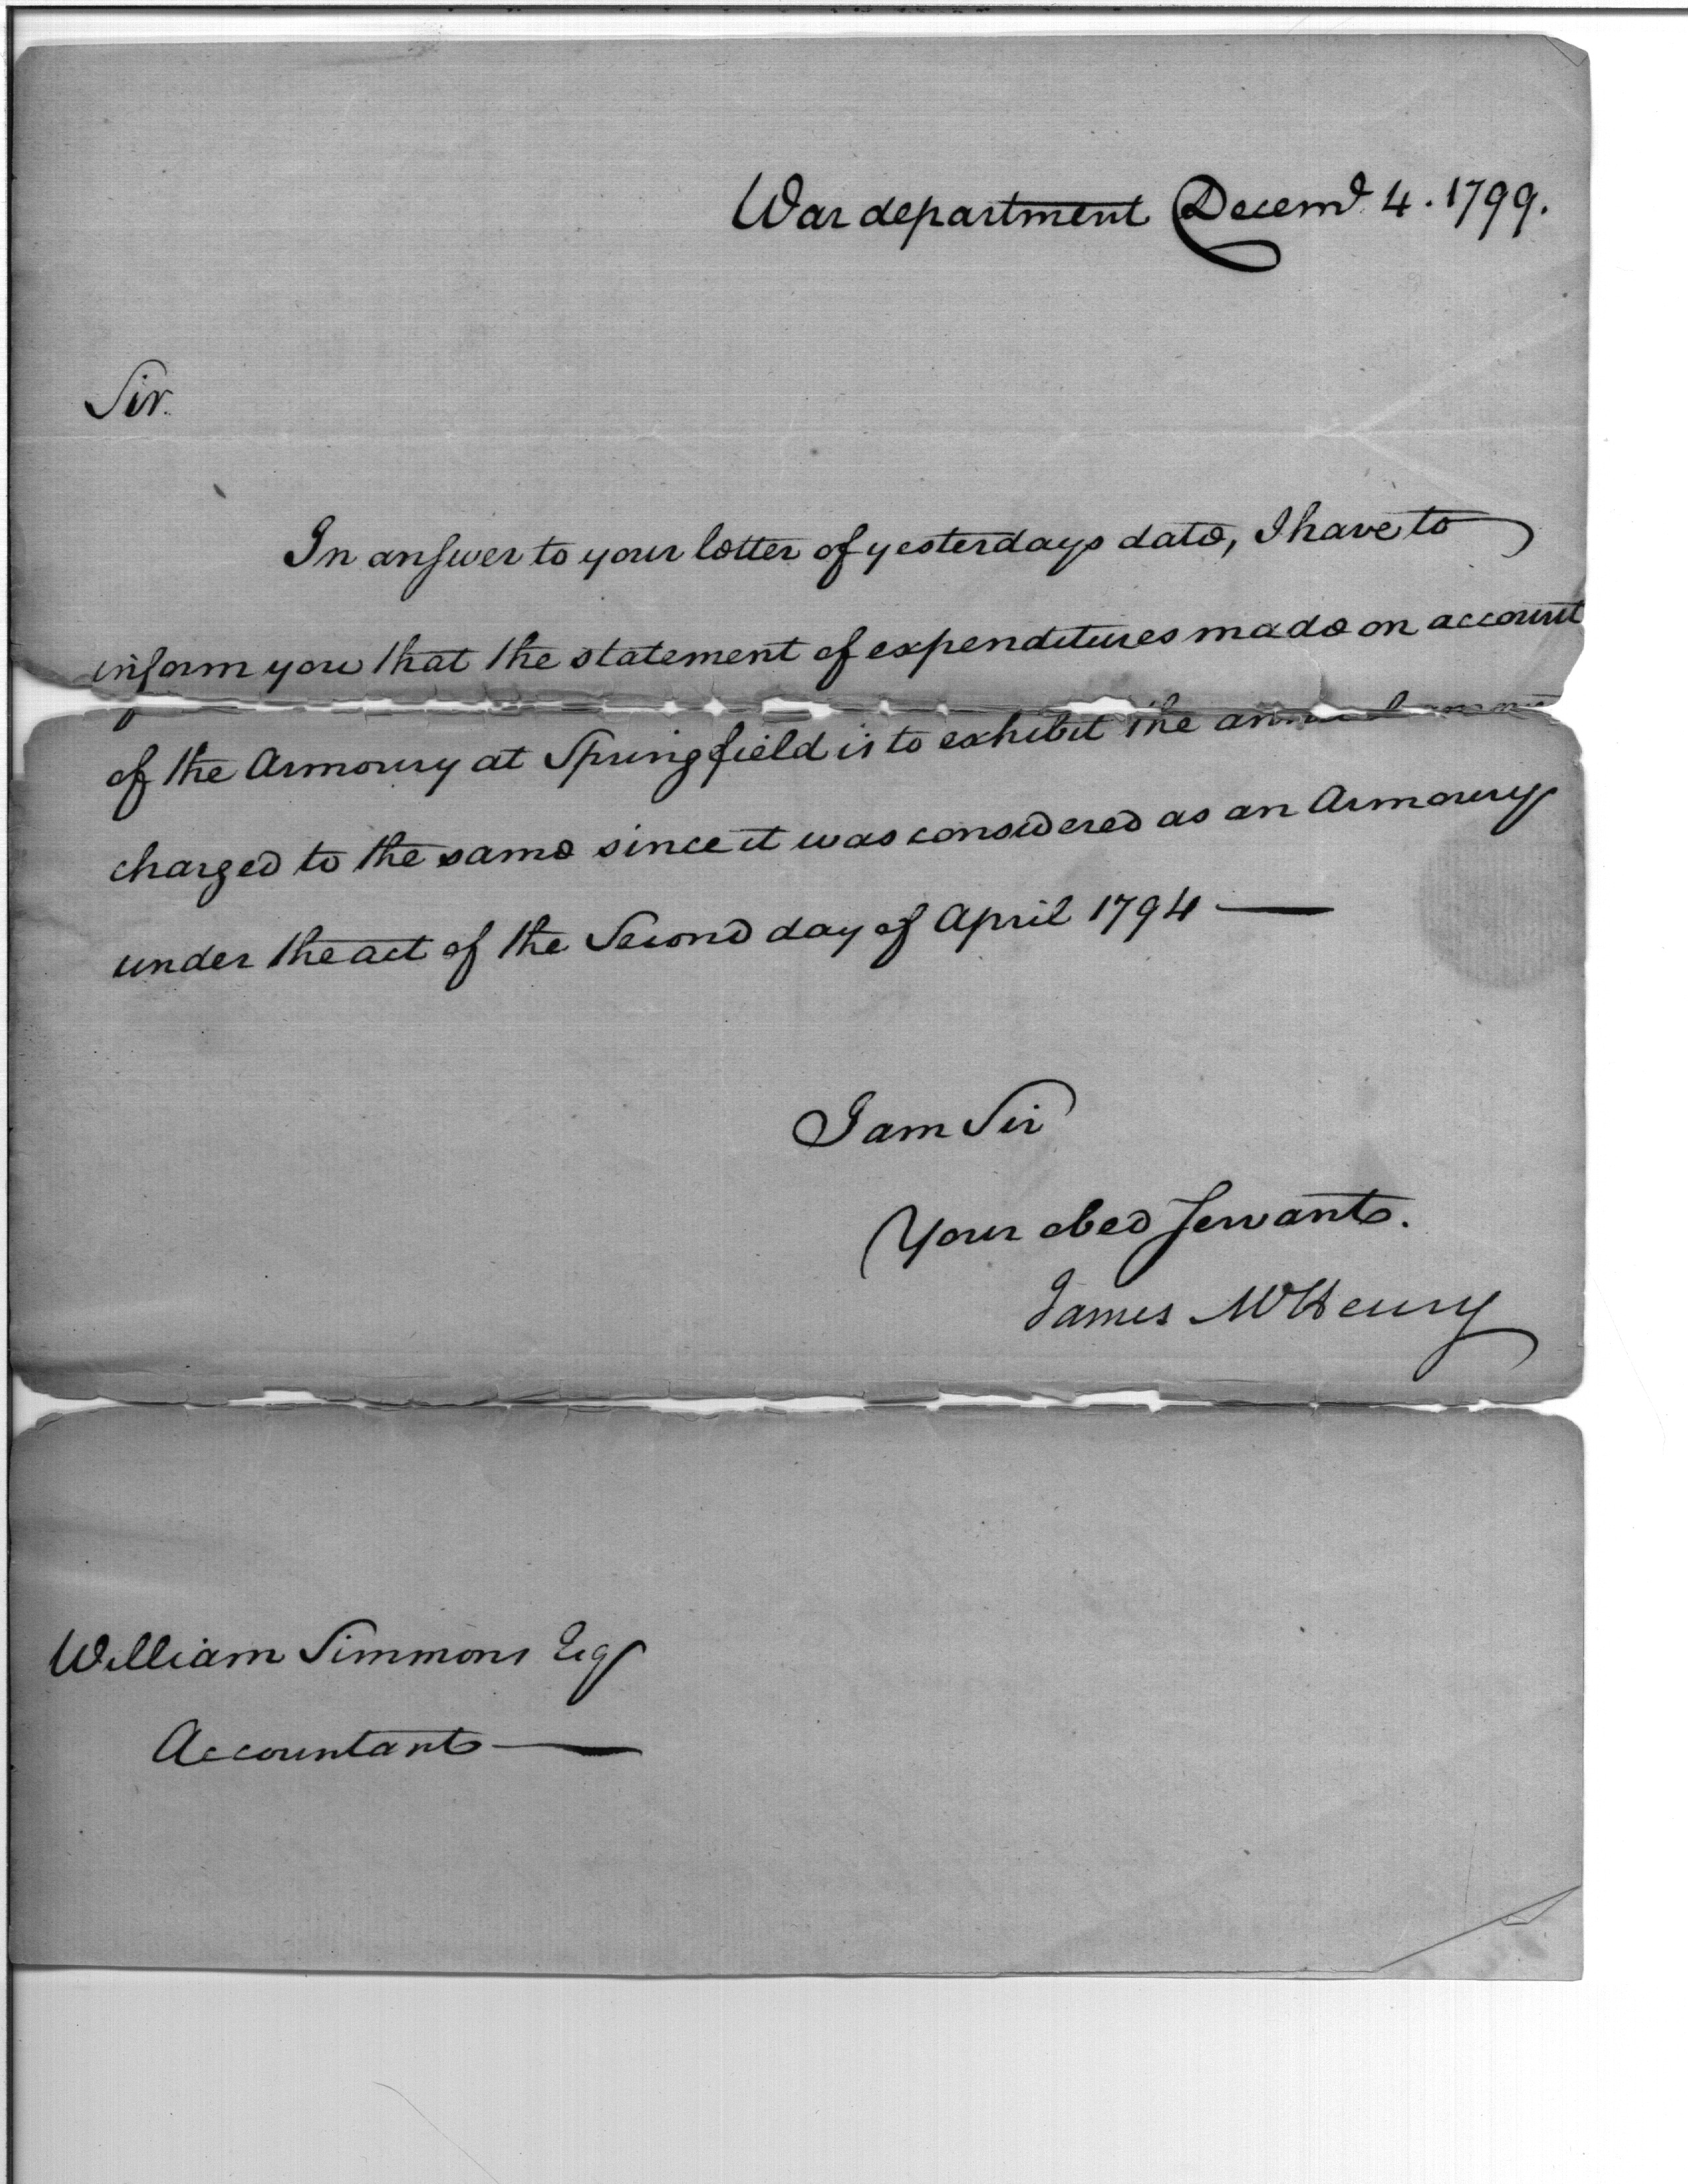 War department Decemr. 4. 1799.
Sir.
In answer to your letter of yesterdays date, I have to
inform you that the statement of expenditures made on account
of the Armoury at Springfield is to exhibit the annual
charged to the same since it was considered as an Armoury
under the act of the Second day of April 1794 —
I am Sir
Your obed servant.
James McHenry
William Simmons Esq
Accountant —